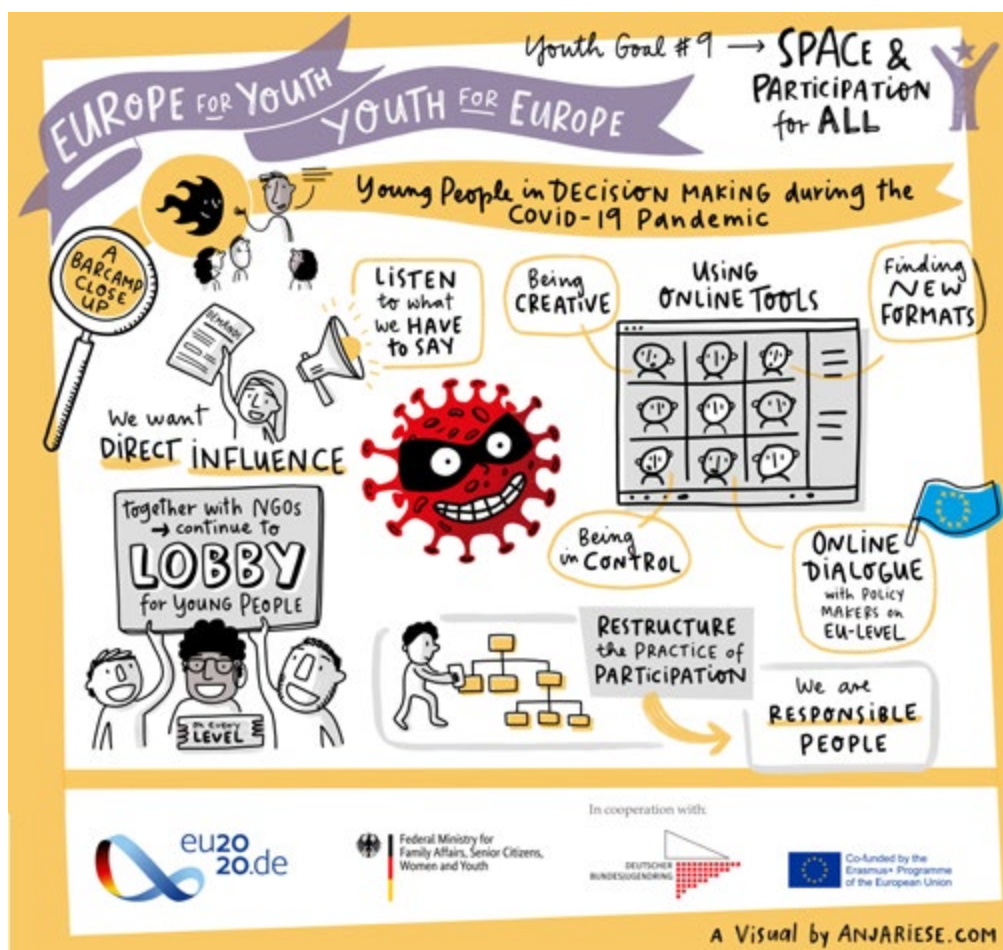 Youth Goal #9 → SPACE &
PARTICIPATION
for ALL
EUROPE FOR YOUTH
YOUTH FOR EUROPE
Young People in DECISION MAKING during the
COVID-19 Pandemic
A
BARCAMP
CLOSE
UP
DEMANDS
LISTEN
to what
we HAVE
to SAY
We want
DIRECT INFLUENCE
together with NGOs
→ continue to
LOBBY
for YOUNG PEOPLE
on every
LEVEL
Being
CREATIVE
USING
ONLINE TOOLS
Finding
NEW
FORMATS
Being
in CONTROL
ONLINE
DIALOGUE
with POLICY
MAKERS on
EU-LEVEL
RESTRUCTURE
the PRACTICE of
PARTICIPATION
We are
RESPONSIBLE
PEOPLE
eu20
20.de
Federal Ministry for
Family Affairs, Senior Citizens,
Women and Youth
In cooperation with:
DEUTSCHER
BUNDESJUGENDRING
Co-funded by the
Erasmus+ Programme
of the European Union
A Visual by ANJARIESE.COM